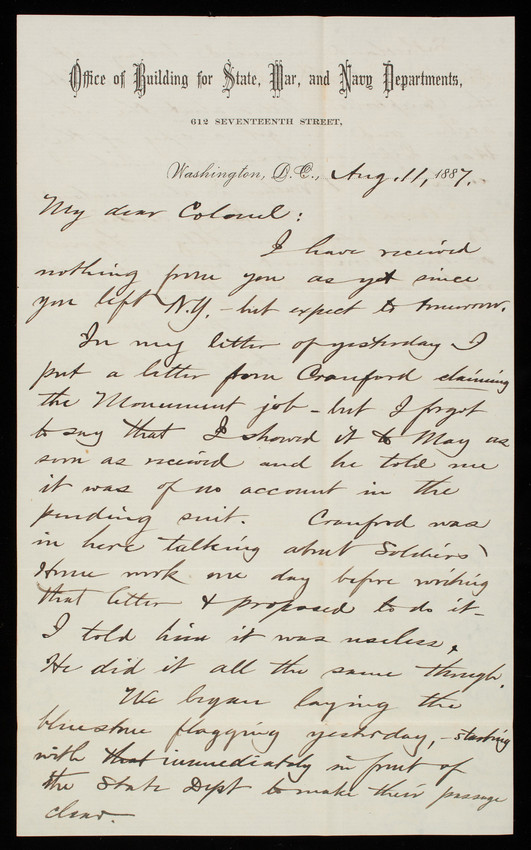 Office of Building for State, War, and Navy Departments,
612 SEVENTEENTH STREET,
Washington, D.C., Aug. 11, 1887.
My dear Colonel:
I have received
nothing from you as yet since
you left N.Y. - but expect to tomorrow.
In my letter of yesterday I
put a letter from Cranford claiming
the Monument job - but I forgot
to say that I showed it to May as
soon as received and he told me
it was of no account in the
pending suit. Cranford was
in here talking about Soldiers'
Home work one day before writing
that letter & proposed to do it -
I told him it was useless.
He did it all the same though.
We began laying the
bluestone flagging yesterday, - starting
with that immediately in front of
the State Dept to make their passage
clear.